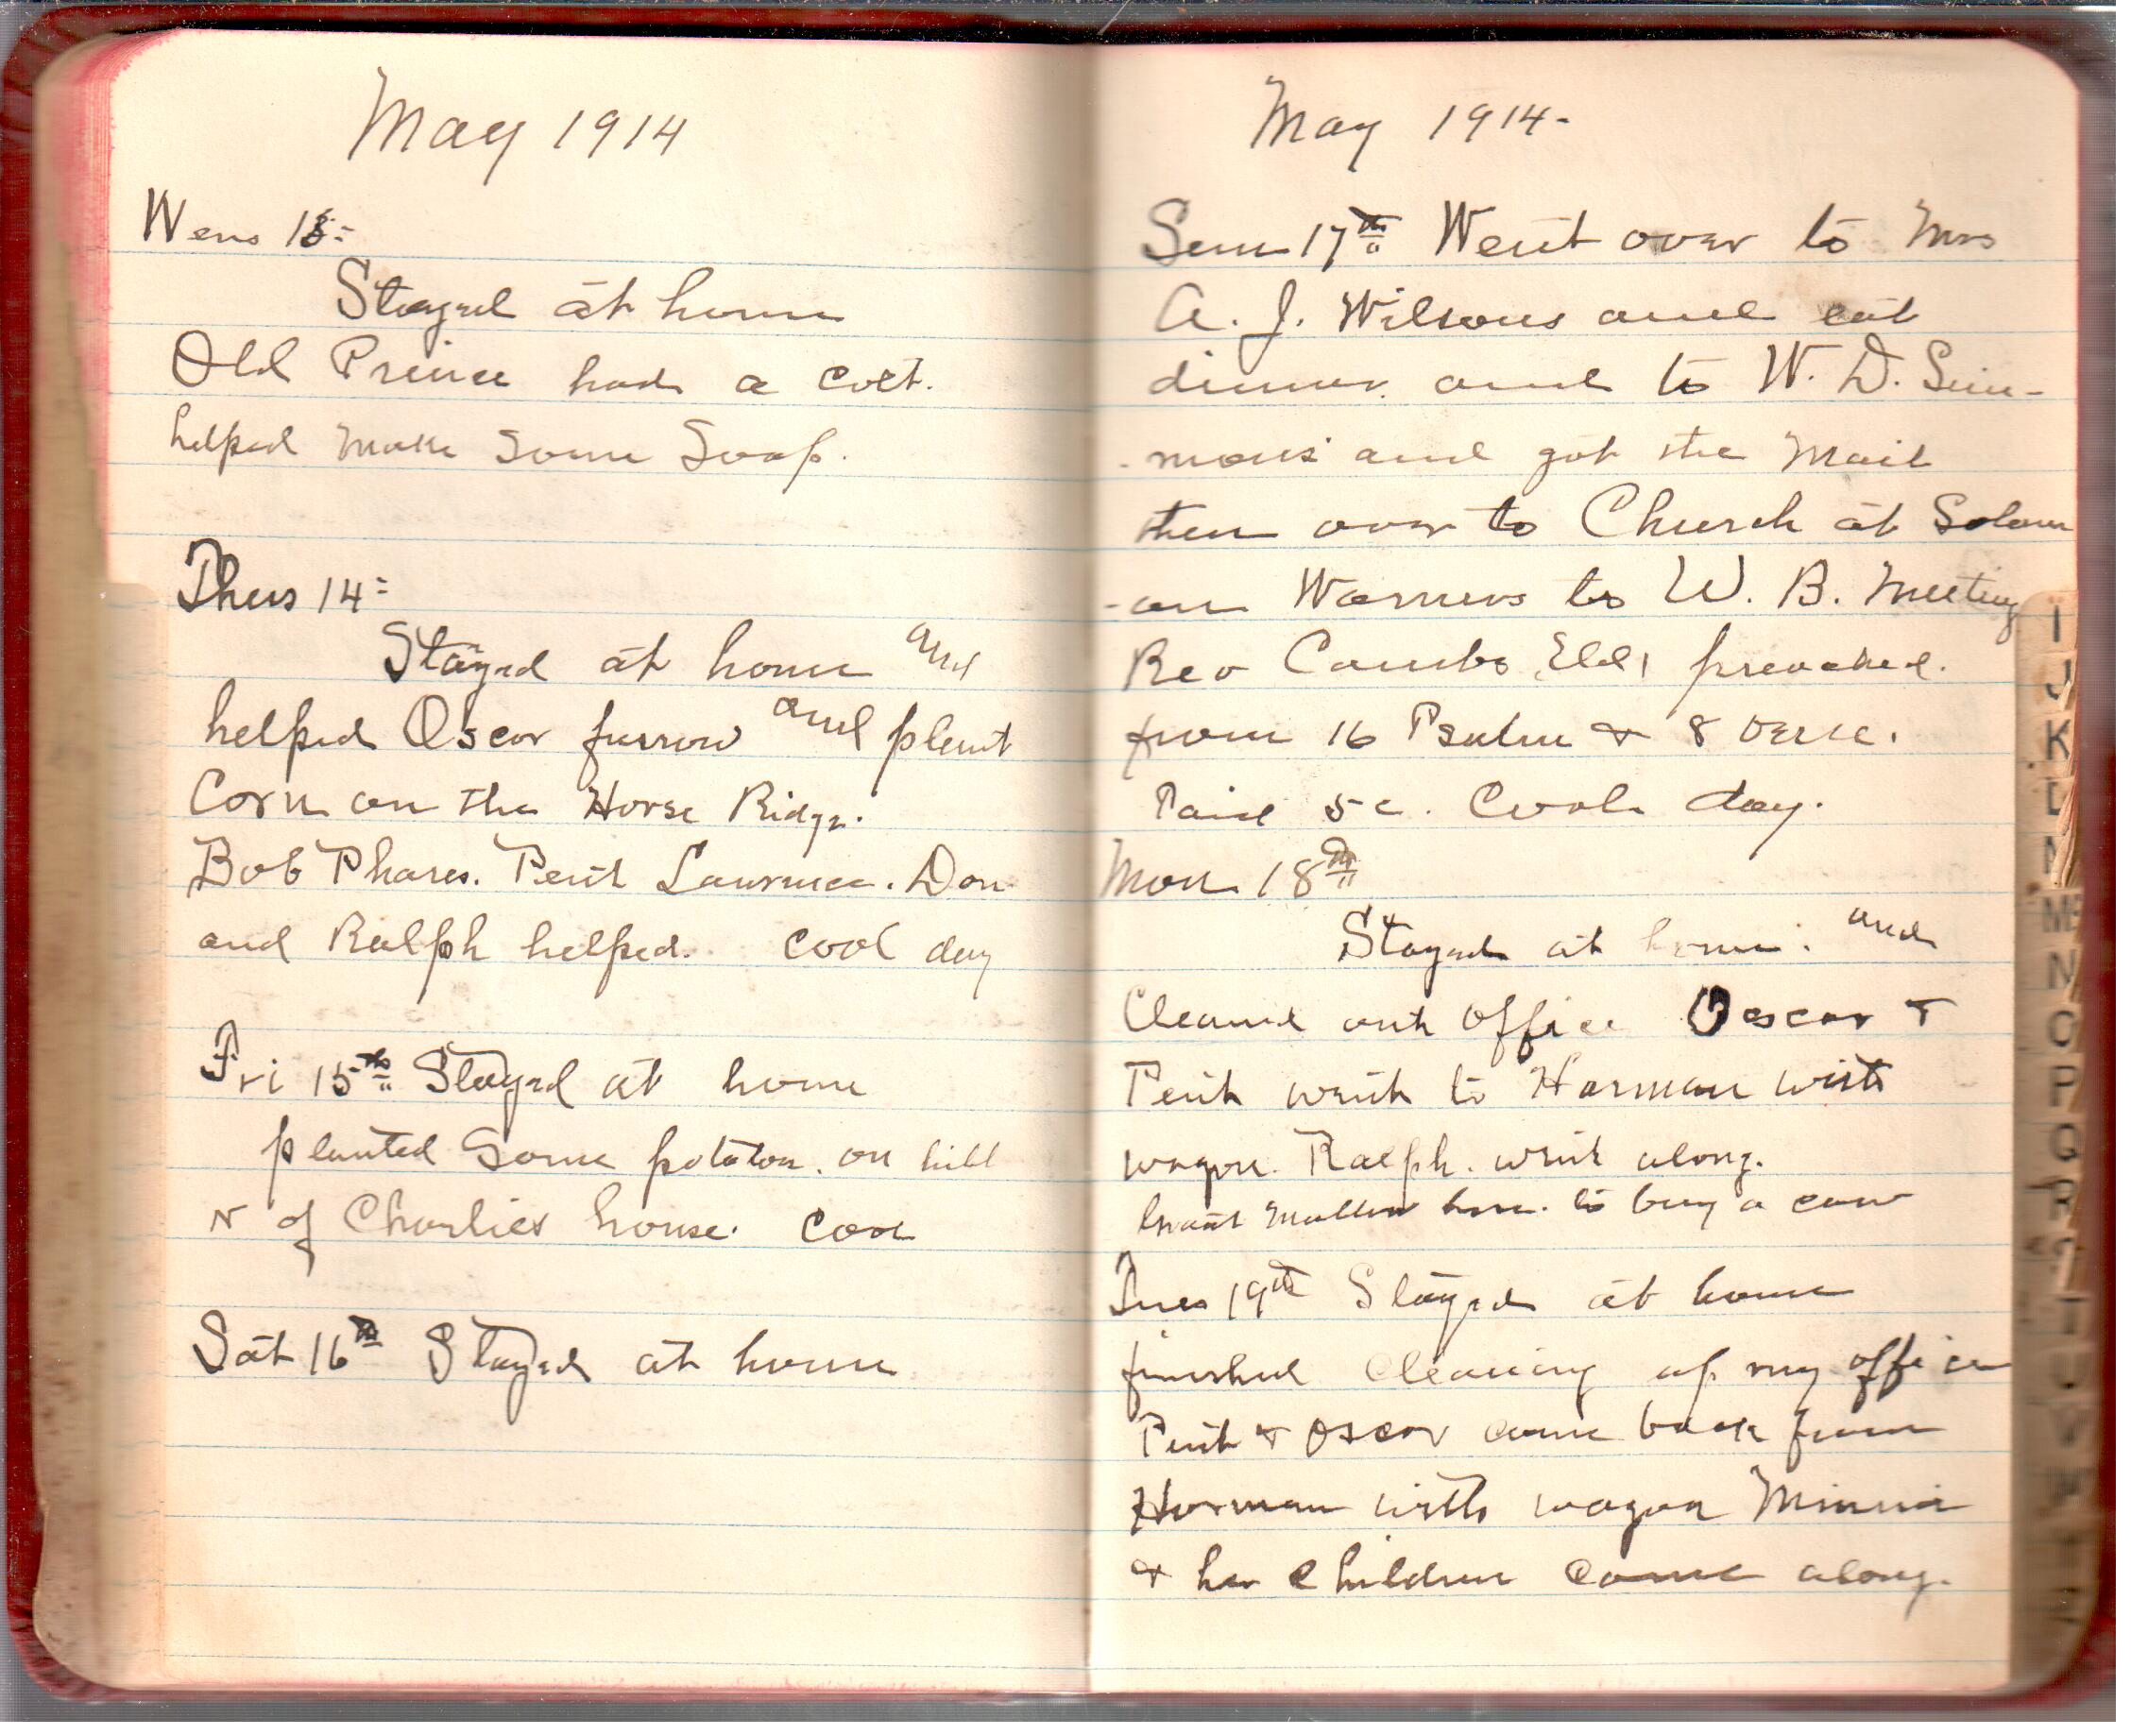 May 1914
Wens 13=
Stayed at home
Old Prince had a colt.
helped make some Soap.
Thurs 14=
Stayed at home and
helped Oscar furrow and plant
Corn on the Horse Ridge.
Bob Phares. Pent Lawrence. Don
and Ralph helped. cool day
Fri 15th Stayed at home
planted some potatoes. on hill
N of Charlies house. cool
Sat 16th Stayed at home
May 1914-
Sun 17th Went over to Mrs
A. J. Wilsons and eat
dinner. and to W. D. Sim-
-mons and got the Mail
then over to Church at Solom
-on Warners to U. B. Meeting
Rev Combs Eld, preached.
from 16 Psalm & 8 verse.
Paid 5c. Cool day.
Mon 18th
Stayed at home. and
Cleaned out office Oscar &
Pent went to Harman with
wagon. Ralph. went along.
Grant Mallow here. to buy a cow
Tues 19th Stayed at home
finished Cleaning up my office
Pent & Oscar came back from
Harman with wagon Minnie
& her Children come along.
I
J
K
L
M
Mc
N
O
P
Q
R
S
T
U
V
W